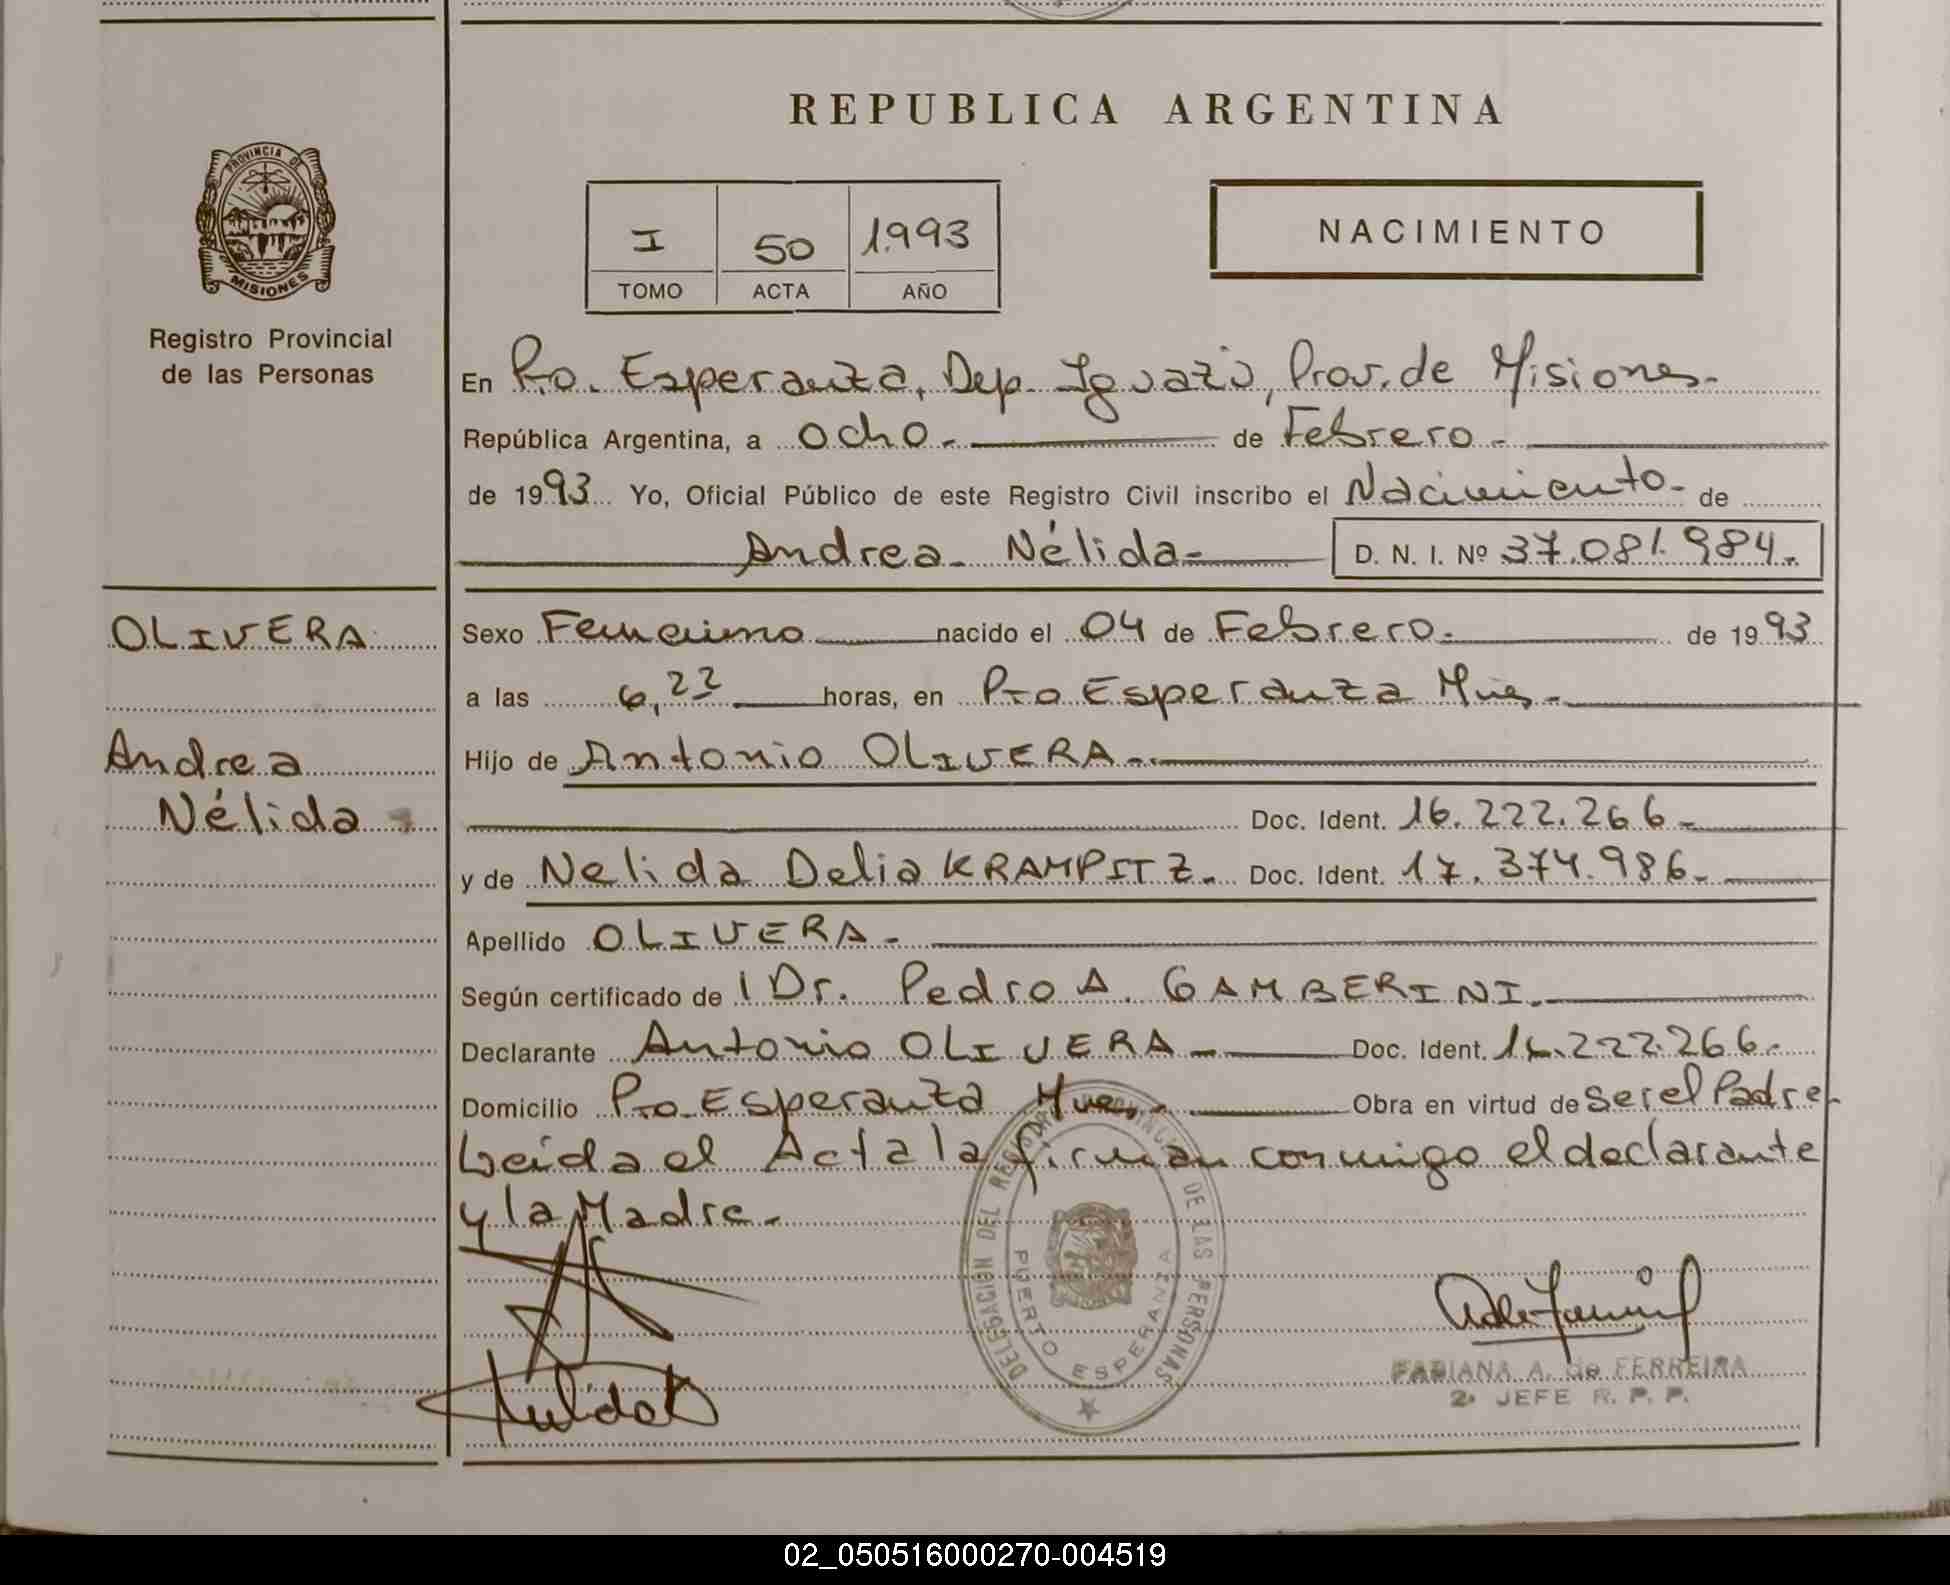 REPUBLICA ARGENTINA
PROVINCIA DE
MISIONES
Registro Provincial
de las Personas
I 50 1.993
TOMO ACTA AÑO
NACIMIENTO
En Pto. Esperanza, Dep. Iguazú, Prov. de Misiones.-
República Argentina, a ocho.- de Febrero.-
de 1993 Yo, Oficial Público de este Registro Civil inscribo el Nacimiento.- de
Andrea Nélida.- D. N. I. Nº 37.081.984.-
OLIVERA
Andrea
Nélida
Sexo Femenino nacido el 04 de Febrero.- de 1993
a las 6,22 horas, en Pto Esperanza Mnes.-
Hijo de Antonio OLIVERA.-
Doc. Ident. 16.222.266.-
y de Nelida Delia KRAMPITZ.- Doc. Ident. 17.374.986.-
Apellido OLIVERA.-
Según certificado de Dr. Pedro A. GAMBERINI.-
Declarante Antonio OLIVERA.- Doc. Ident. 16.222.266.-
Domicilio Pto Esperanza Mnes.- Obra en virtud de ser el Padre.-
Leida el Acta la firman conmigo el declarante
y la Madre.-
DELEGACIÓN DEL REGISTRO PROVINCIAL DE LAS PERSONAS
PUERTO ESPERANZA
FABIANA A. de FERREIRA
2º JEFE R. P. P.
02_050516000270-004519